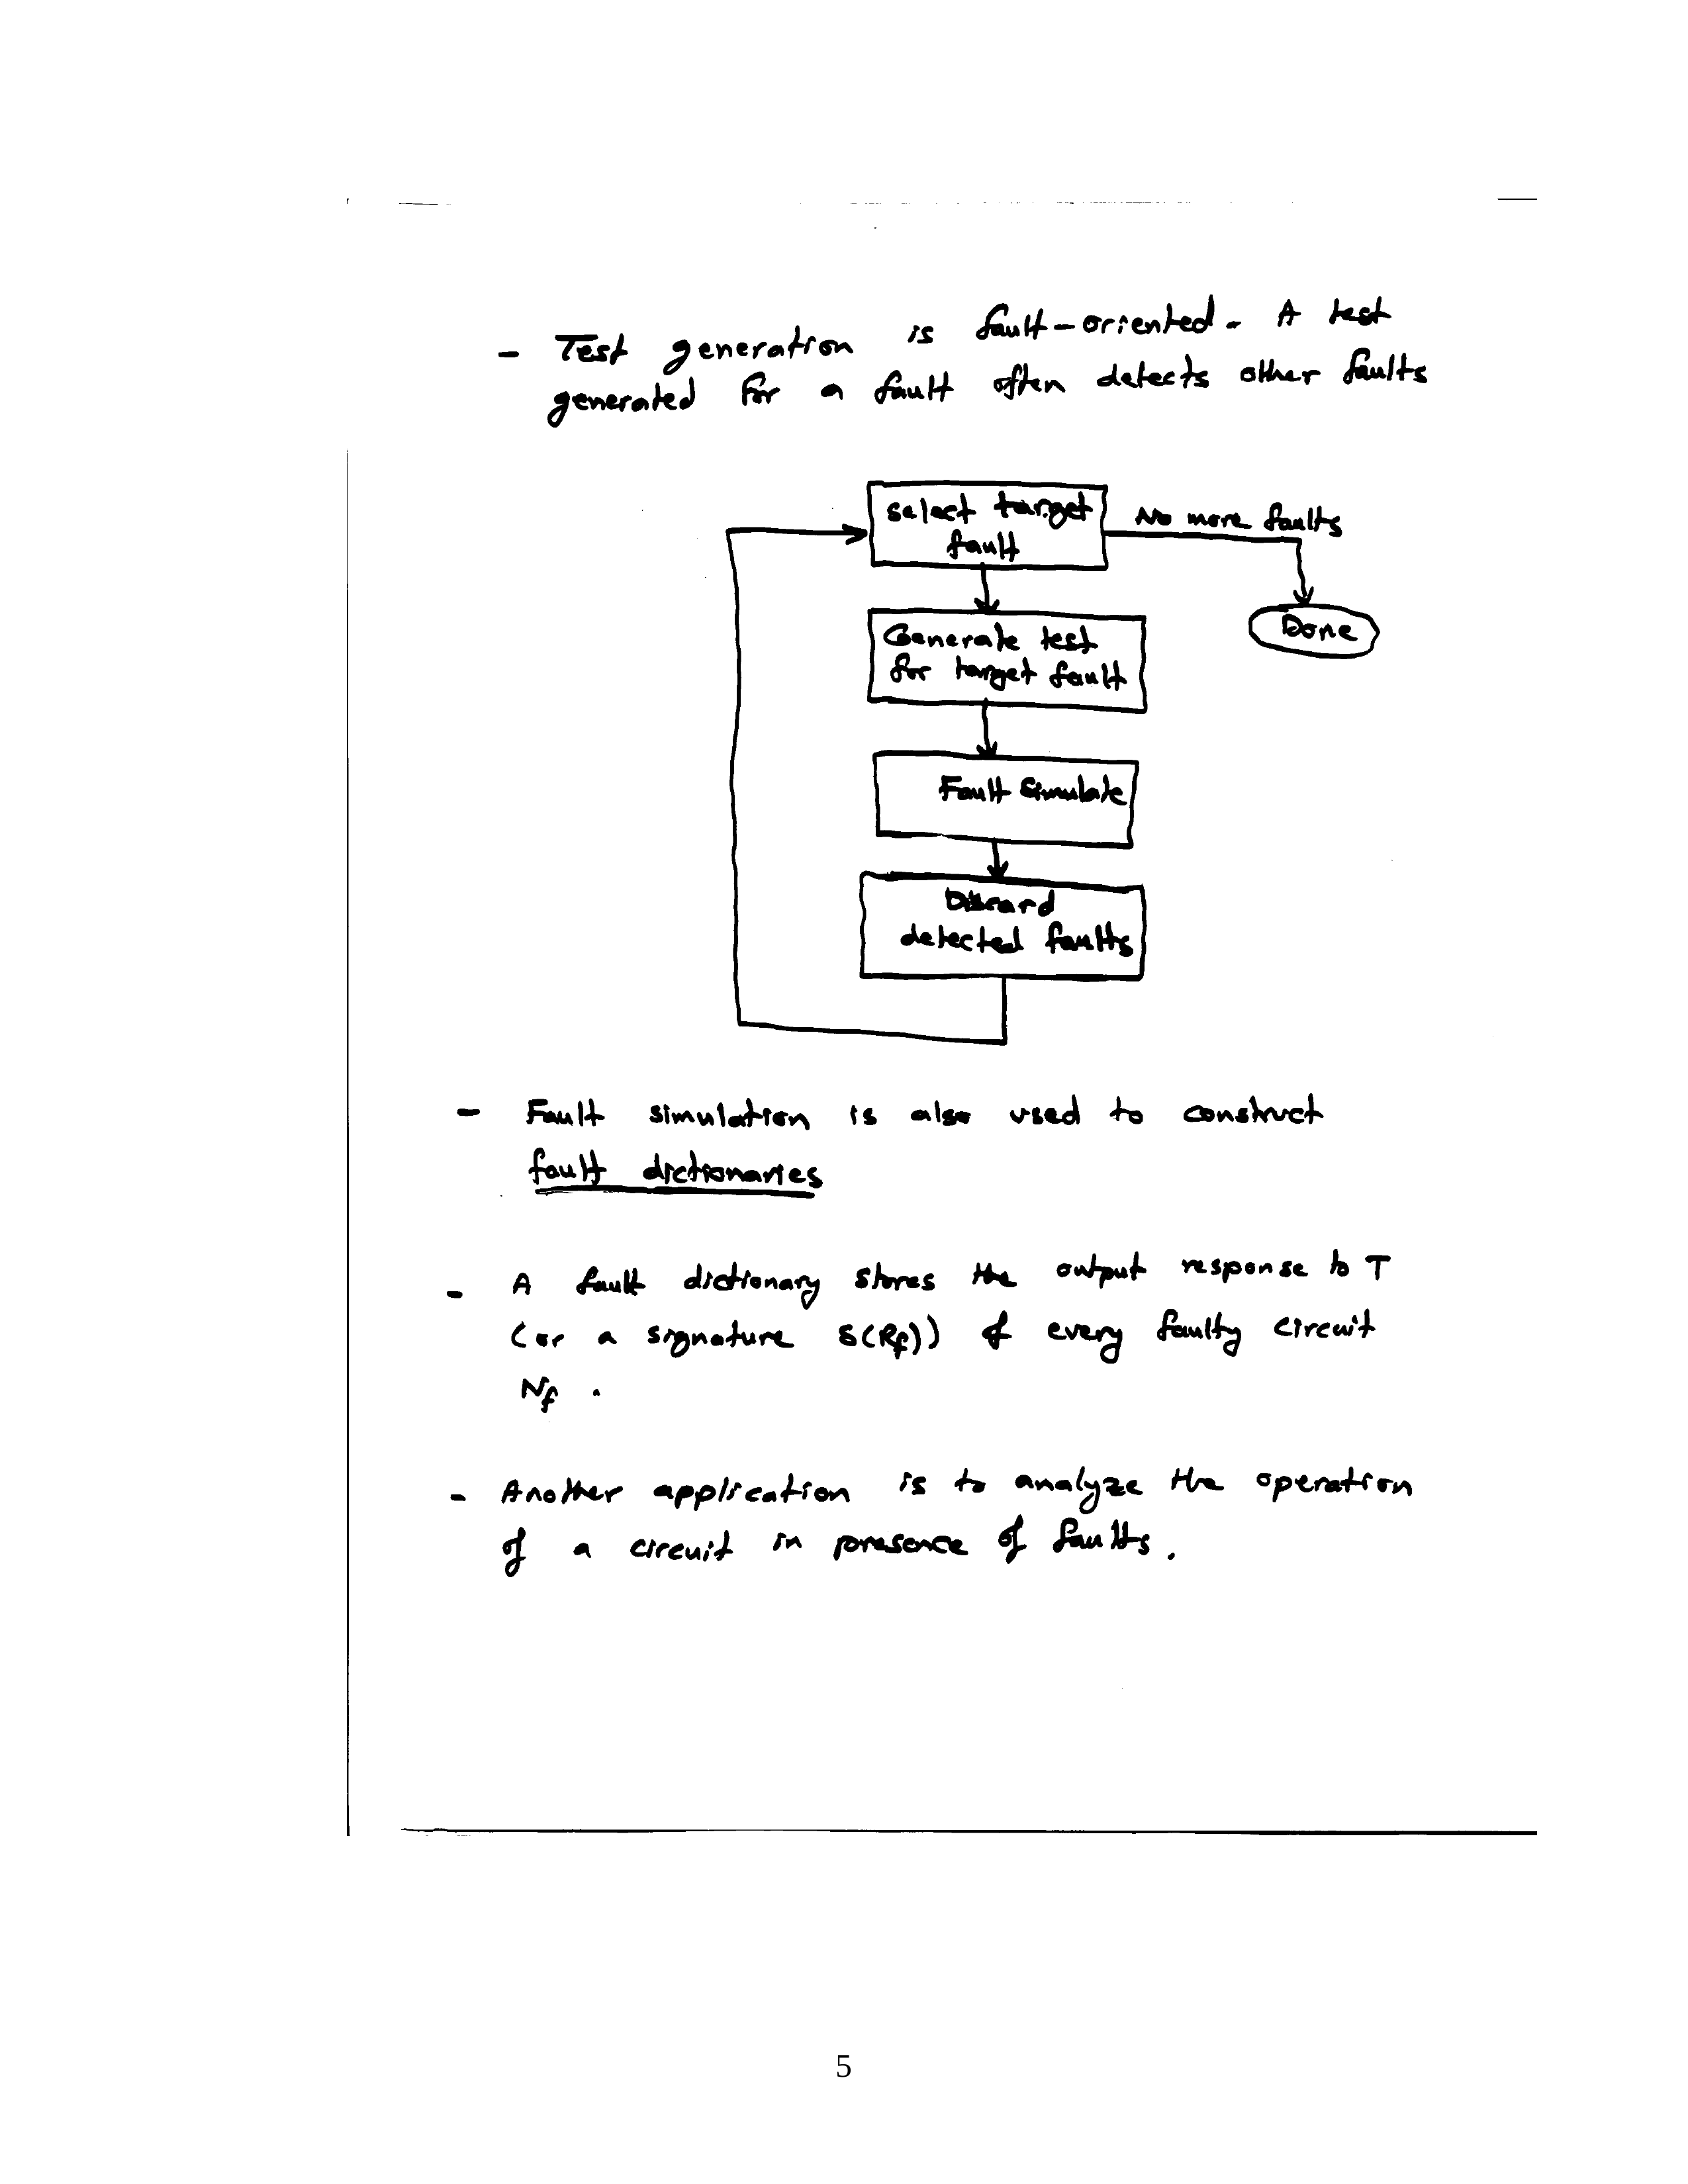 - Test generation is fault-oriented. A test
generated for a fault often detects other faults
select target
fault
No more faults
Done
Generate test
for target fault
Fault simulate
Discard
detected faults
- Fault simulation is also used to construct
fault dictionaries
- A fault dictionary stores the output response to T
(or a signature S(Rf)) of every faulty circuit
Nf .
- Another application is to analyze the operation
of a circuit in presence of faults.
5